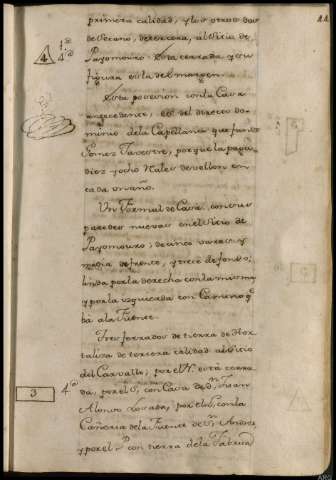 primera calidad, y los otros dos
de secano, de tercera, al Sitio de
Payomouro: Esta cerrada, y su
figura es la del margen.
Esta posesion con la Casa
antecedente, es del directo do-
minio de la Capellania que fundó
Gomez Tavestre, porque la paga
diez y ocho Rales de vellon en
cada un año.
Un Formal de Casa, con sus
paredes nuevas en el Sitio de
Payomouro, de cinco varas, y
media de frente, y trece de fondo,
linda por la derecha con la misma
y por la izquierda con Camino q.e
bá a la Fuente.
Tres ferrados de tierra de Hor-
taliza de tercera calidad al Sitio
del Carvallo; por el N. está cerra
da, por el S. con Casa de D.n Juan
Alonso Losada, por el con la
Cañeria de la Fuente de S.n Andres,
y por el P. con tierra de la Fabrica
4
1.a
4.a
3
4.a